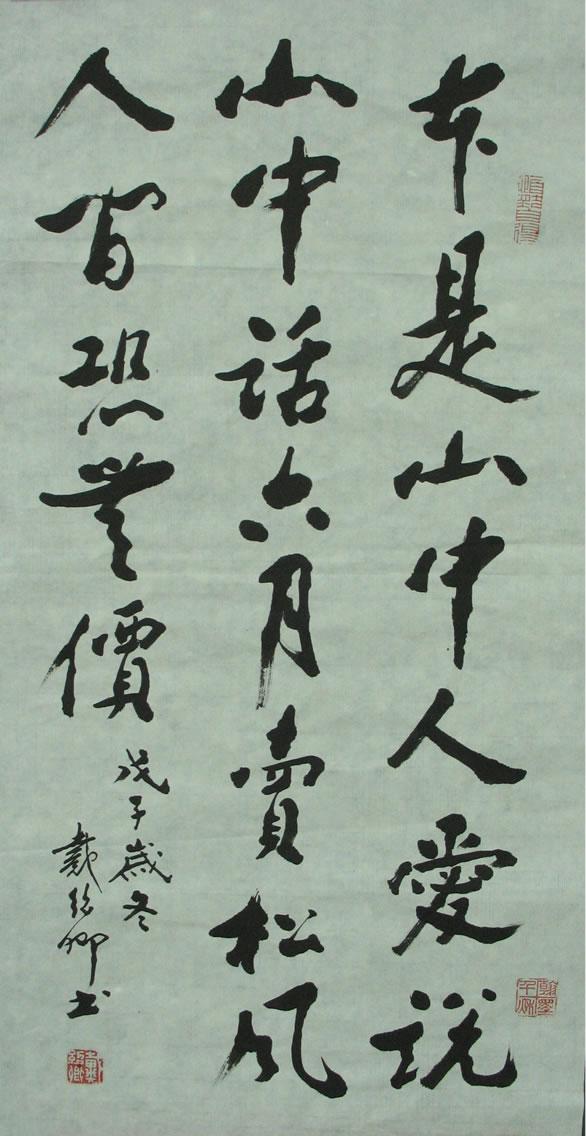 本是山中人愛說
山中話六月賣松風
人間恐無價
戊子歲冬
戴紹卿書